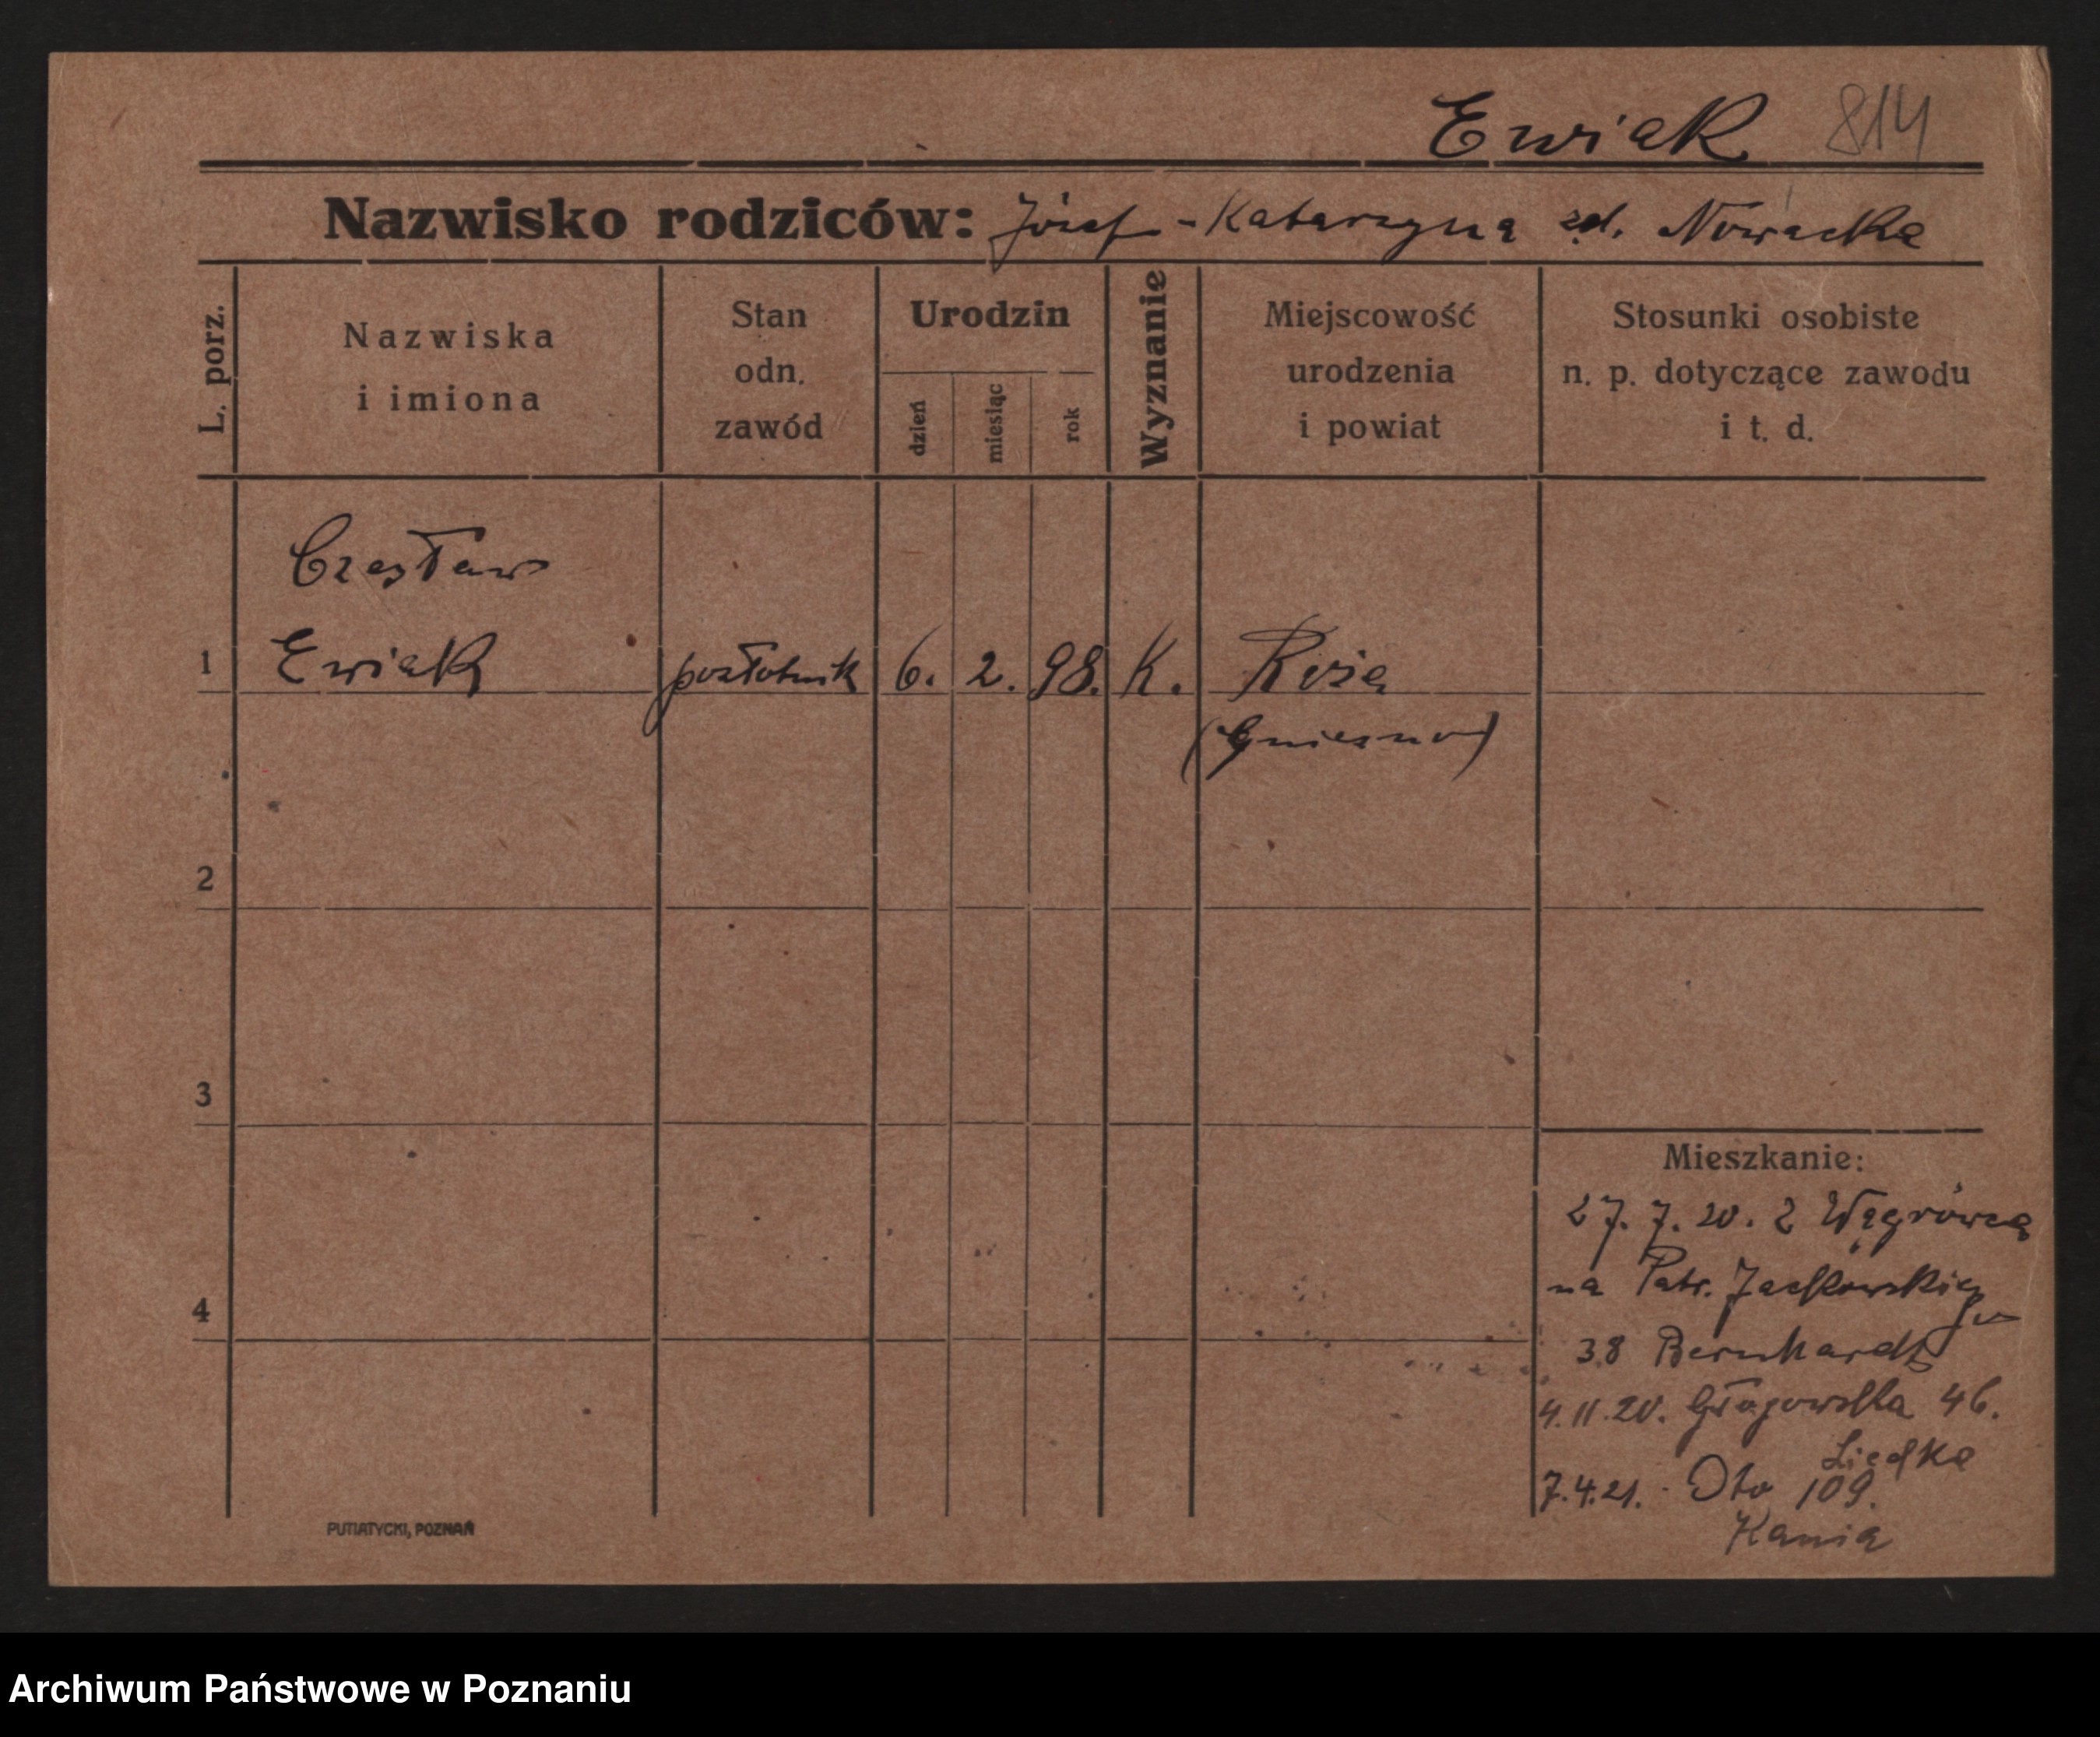 Ewiak 814
Nazwisko rodziców: Józef - Katarzyna zd. Nowacka
L. porz.
Nazwiska
i imiona
Stan
odn.
zawód
Urodzin
dzień
miesiąc
rok
Wyznanie
Miejscowość
urodzenia
i powiat
Stosunki osobiste
n. p. dotyczące zawodu
i t. d.
Czesław
1 Ewiak pozłotnik 6. 2. 98. K. Róża
(Gniezno)
2
3
4
Mieszkanie:
27. 7. 20. z Wągrówca
na Patr. Jackowskiego
38 Bernhardt
4. 11. 20. Głogowska 46.
Liedke
7.4.21. Oto 109.
Kania
PUTIATYCKI, POZNAŃ
Archiwum Państwowe w Poznaniu